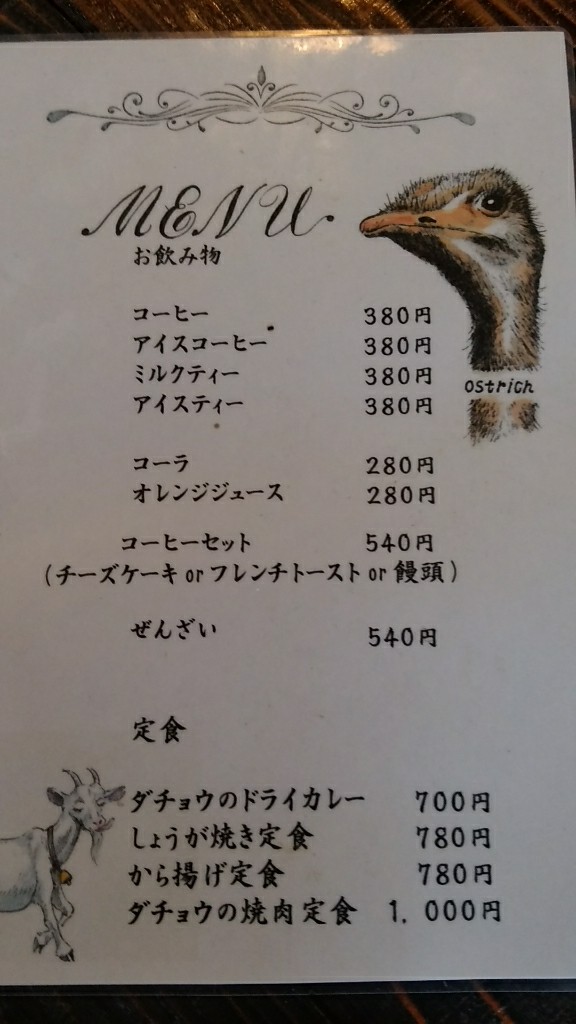 MENU
お飲み物
コーヒー 380円
アイスコーヒー 380円
ミルクティー 380円
アイスティー 380円
ostrich
コーラ 280円
オレンジジュース 280円
コーヒーセット 540円
(チーズケーキ or フレンチトースト or 饅頭)
ぜんざい 540円
定食
ダチョウのドライカレー 700円
しょうが焼き定食 780円
から揚げ定食 780円
ダチョウの焼肉定食 1. 000円